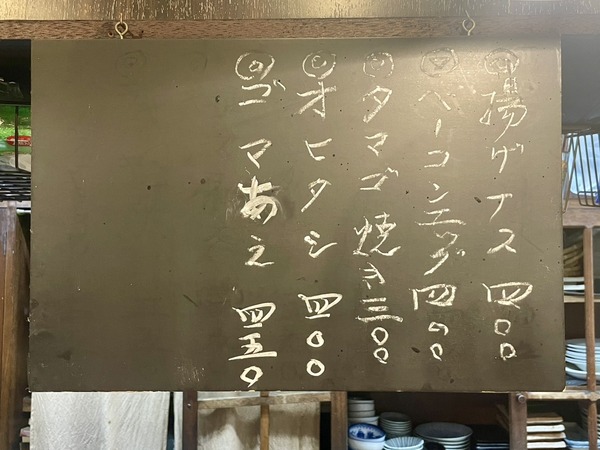 揚ゲナス 四〇〇
ベーコンエッグ 四〇〇
タマゴ焼キ 三〇〇
オヒタシ 四〇〇
ゴマあえ 四五〇